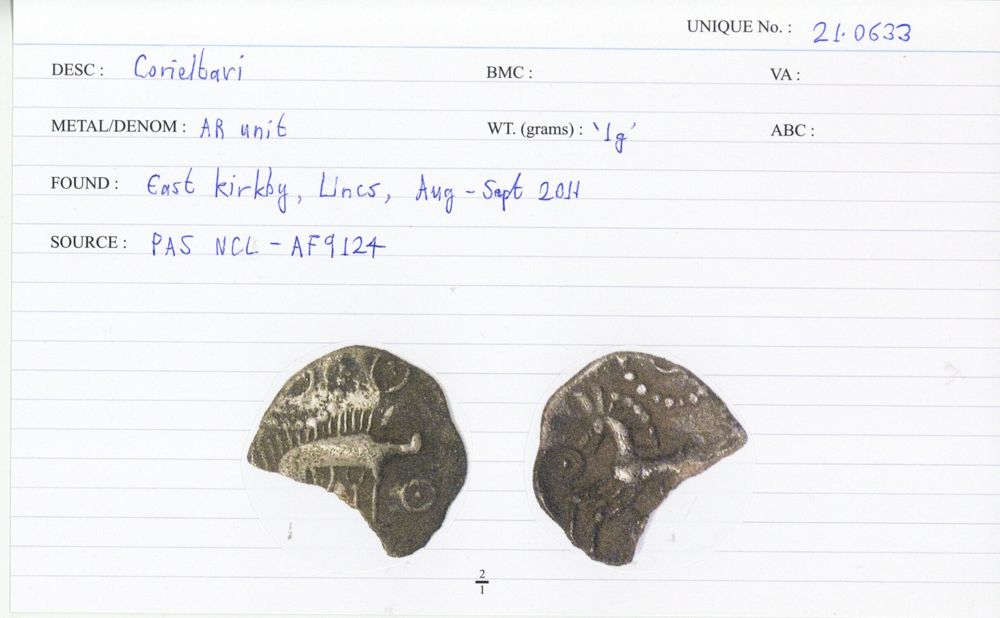 UNIQUE No. : 21.0633
DESC : Corieltavi BMC : VA :
METAL/DENOM : AR unit WT. (grams) : '1g' ABC :
FOUND : East kirkby, Lincs, Aug - Sept 2011
SOURCE : PAS NCL - AF9124
2
1